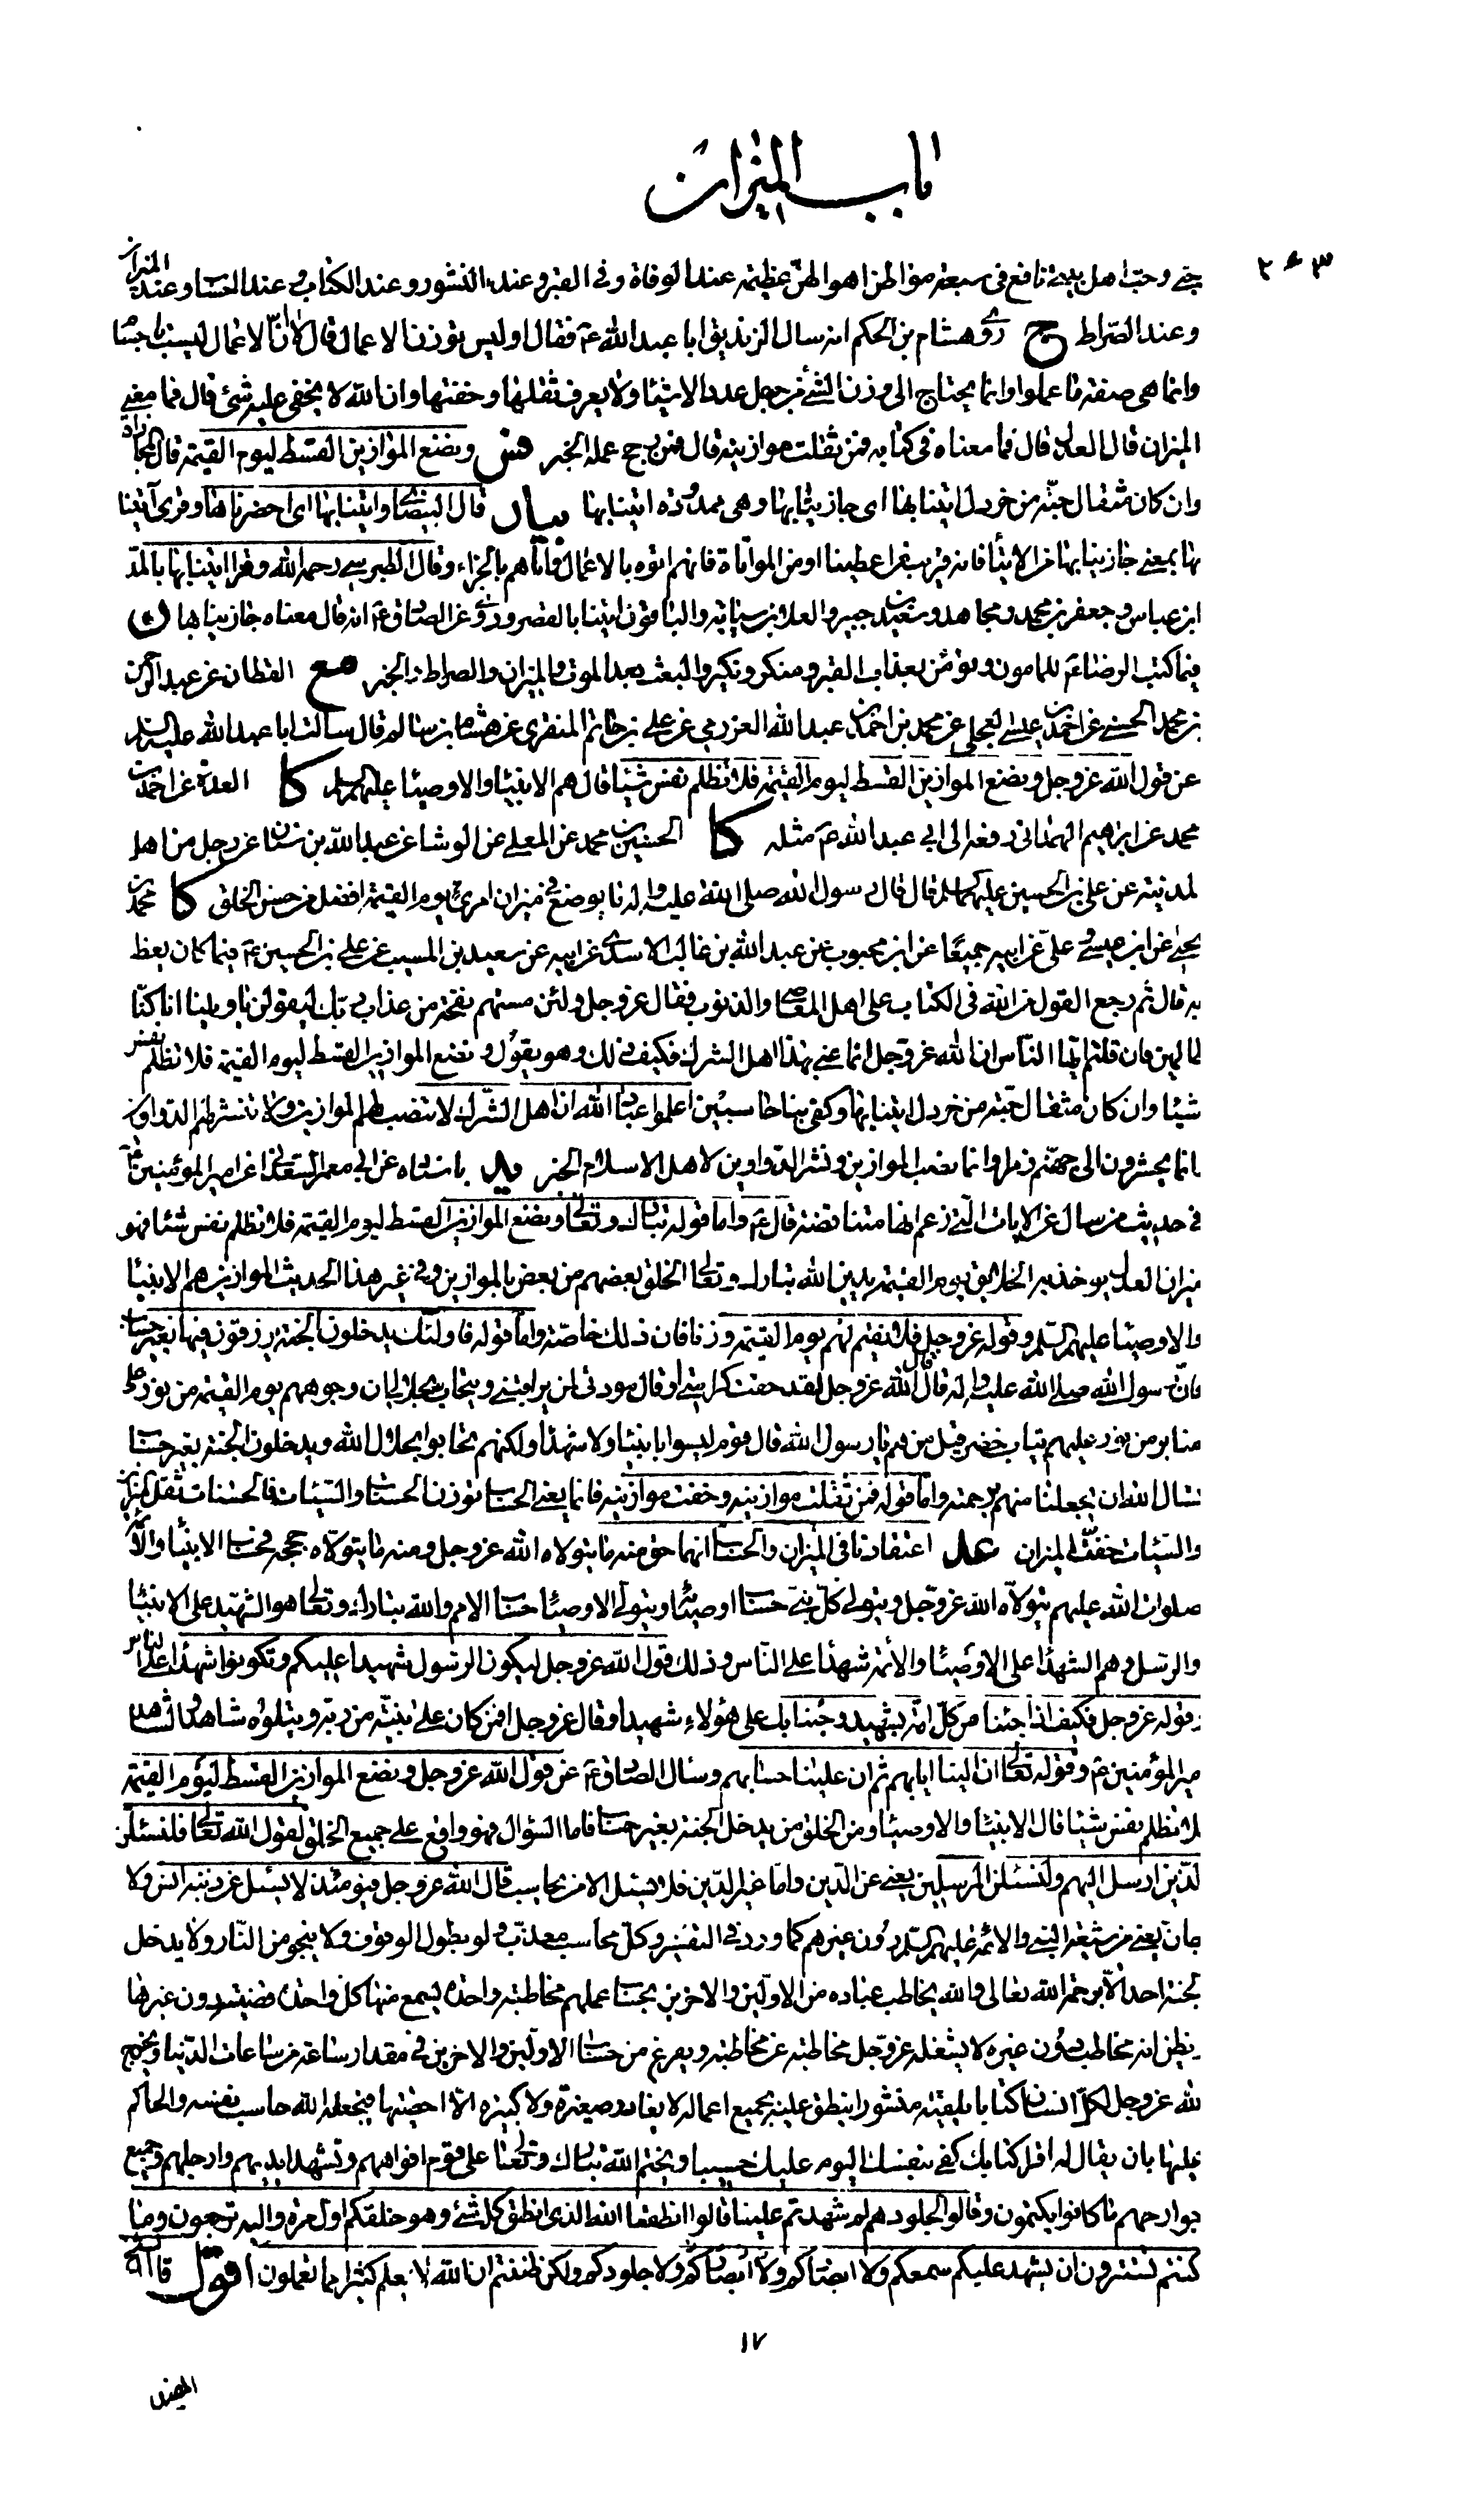 باب الميزان
٣ ٢
حبّي وحبّ اهل بيتي نافع في سبعة مواطن اهوالهنّ عظيمة عند الوفاة وفي القبر وعند النشور وعند الكتاب وعند الحساب وعند الميزان
وعند الصّراط ج روى هشام بن الحكم انه سال الزنديق ابا عبد الله ع فقال اوليس توزن الاعمال قال لا لانّ الاعمال ليست باجسام
وانما هي صفة ما عملوا وانما يحتاج الى وزن الشئ من جهل عدد الاشياء ولا يعرف ثقلها وخفتها وان الله لا يخفى عليه شئ قال فما معنى
الميزان قال العدل قال فما معناه في كتابه فمن ثقلت موازينه قال فمن رجح عمله الخبر فس ونضع الموازين القسط ليوم القيمة قال المجازاة
وان كان مثقال حبّة من خردل اتينا بها اى جازينا بها وهي ممدودة اتينا بها بيان قال البيضاوي اتينا بها اى احضرناها وقرئ آتينا
بها بمعنى جازينا بها من الايتاء فانه قريب من اعطينا او من المواتاة فانهم اتوه بالاعمال واتاهم بالجزاء وقال الطبرسي رحمه الله وقرا اتينا بها بالمدّ
ابن عباس وجعفر بن محمد ومجاهد وسعيد بن جبير والعلا بن سيابة والباقون اتينا بالقصر وروى عن الصادق ع انه قال معناه جازينا بها ن
فيما كتب الرضا ع للمامون وتؤمن بعذاب القبر ومنكر ونكير والبعث بعد الموت والميزان والصراط الخبر مع القطان عن عبد الرحمن
بن محمد الحسني عن احمد بن عيسى العجلي عن محمد بن احمد بن عبد الله العرزمي عن علي بن حاتم المنقري عن هشام بن سالم قال سالت ابا عبد الله عليه السلام
عن قول الله عز وجل ونضع الموازين القسط ليوم القيمة فلا تظلم نفس شيئا قال هم الانبياء والاوصياء عليهم السلام كا العدة عن احمد بن
محمد عن ابراهيم الهمداني رفعه الى ابي عبد الله ع مثله كا الحسين بن محمد عن المعلى عن الوشا عن عبد الله بن سنان عن رجل من اهل
المدينة عن علي بن الحسين عليهما السلام قال قال رسول الله صلى الله عليه واله ما يوضع في ميزان امرئ يوم القيمة افضل من حسن الخلق كا محمد بن
يحيى عن ابن عيسى وعليّ عن ابيه جميعًا عن ابن محبوب عن عبد الله بن غالب الاسدي عن ابيه عن سعيد بن المسيب عن علي بن الحسين ع فيما كان يعظ
به قال ثم رجع القول من الله في الكتاب على اهل المعاصي والذنوب فقال عز وجل ولئن مستهم نفحة من عذاب ربّك ليقولن يا ويلنا انا كنّا
ظالمين فان قلتم ايّها النّاس ان الله عز وجل انما عنى بهذا اهل الشرك فكيف ذلك وهو يقول ونضع الموازين القسط ليوم القيمة فلا تظلم نفس
شيئا وان كان مثقال حبّة من خردل اتينا بها وكفى بنا حاسبين اعلموا عباد الله ان اهل الشّرك لا تنصب لهم الموازين ولا تنشر لهم الدّواوين
وانما يحشرون الى جهنّم زمرا وانما نصب الموازين ونشر الدّواوين لاهل الاسلام الخبر يد باسناده عن ابي معمر السعداني عن امير المؤمنين ع
في حديث من سال عن الايات التي زعم انها متناقضة قال ع واما قوله تبارك وتعالى ونضع الموازين القسط ليوم القيمة فلا تظلم نفس شيئا فهو
ميزان العدل يوخذ به الخلايق يوم القيمة يدين الله تبارك وتعالى الخلق بعضهم من بعض بالموازين وفي غير هذا الحديث الموازين هم الانبياء
والاوصياء عليهم السّلم وقوله عز وجل فلا نقيم لهم يوم القيمة وزنا فان ذلك خاصّة واما قوله فاولئك يدخلون الجنة يرزقون فيها بغير حساب
فانّ رسول الله صلى الله عليه واله قال قال الله عز وجل لقد حقت كرامتي او قال مودتي لمن يراقبني ويتحاب بجلالي ان وجوههم يوم القيمة من نور على
منابر من نور عليهم ثياب خضر قيل من هم يا رسول الله قال قوم ليسوا بانبياء ولا شهداء ولكنهم تحابوا بجلال الله ويدخلون الجنة بغير حساب
نسال الله ان يجعلنا منهم برحمته واما قوله فمن ثقلت موازينه وخفت موازينه فانما يعني الحساب توزن الحسنات والسّيئات فالحسنات ثقل الميزان
والسّيئات خفّة الميزان عد اعتقادنا في الميزان والحساب انهما حق منه ما يتولاه الله عز وجل ومنه ما يتولاه حججه فحساب الانبياء والائمة
صلوات الله عليهم يتولاه الله عز وجل ويتولى كلّ نبيّ حساب اوصيائه ويتولى الاوصياء حساب الامم والله تبارك وتعالى هو الشهيد على الانبياء
والرسل وهم الشهداء على الاوصياء والائمة شهداء على النّاس وذلك قول الله عز وجل ليكون الرسول شهيدا عليكم وتكونوا شهداء على الناس
وقوله عز وجل فكيف اذا جئنا من كلّ امّة بشهيد وجئنا بك على هؤلاء شهيدا وقال عز وجل افمن كان على بيّنة من ربّه ويتلوه شاهد منه والشاهد
امير المؤمنين ع وقوله تعالى ان الينا ايابهم ثم ان علينا حسابهم وسئل الصادق ع عن قول الله عز وجل ونضع الموازين القسط ليوم القيمة
فلا تظلم نفس شيئا قال الانبياء والاوصياء ومن الخلق من يدخل الجنة بغير حساب فاما السّؤال فهو واقع على جميع الخلق لقول الله تعالى فلنسئلنّ
الّذين ارسل اليهم ولنسئلن المرسلين يعني عن الدّين وامّا غير الدّين فلا يسئل الا من يحاسب قال الله عز وجل فيومئذ لا يسئل عن ذنبه انس ولا
جانّ يعني من شيعة النبي والائمة عليهم السّلم دون غيرهم كما ورد في التفسير وكلّ محاسب معذّب ولو بطول الوقوف ولا ينجو من النّار ولا يدخل
الجنة احد الّا برحمة الله تعالى والله يخاطب عباده من الاولين والاخرين بحساب عملهم مخاطبة واحدة يسمع منها كل واحد قضيته دون غيرها
ويظن انه مخاطب دون غيره لا يشغله عز وجل مخاطبة عن مخاطبة ويفرغ من حساب الاولين والاخرين في مقدار ساعة من ساعات الدّنيا ويخرج
الله عز وجل لكلّ انسان كتابا يلقيه منشورا ينطق عليه بجميع اعماله لا يغادر صغيرة ولا كبيرة الّا احصيها فيجعله الله حاسب نفسه والحاكم
عليها بان يقال له اقرا كتابك كفى بنفسك اليوم عليك حسيبا ويختم الله تبارك وتعالى على قوم افواههم وتشهد ايديهم وارجلهم وجميع
جوارحهم بما كانوا يكتمون وقالوا لجلودهم لم شهدتم علينا قالوا انطقنا الله الذي انطق كل شئ وهو خلقكم اول مرة واليه ترجعون وما
كنتم تستترون ان يشهد عليكم سمعكم ولا ابصاركم ولا جلودكم ولكن ظننتم ان الله لا يعلم كثيرا مما تعملون اقول قال
١٧
المفيد